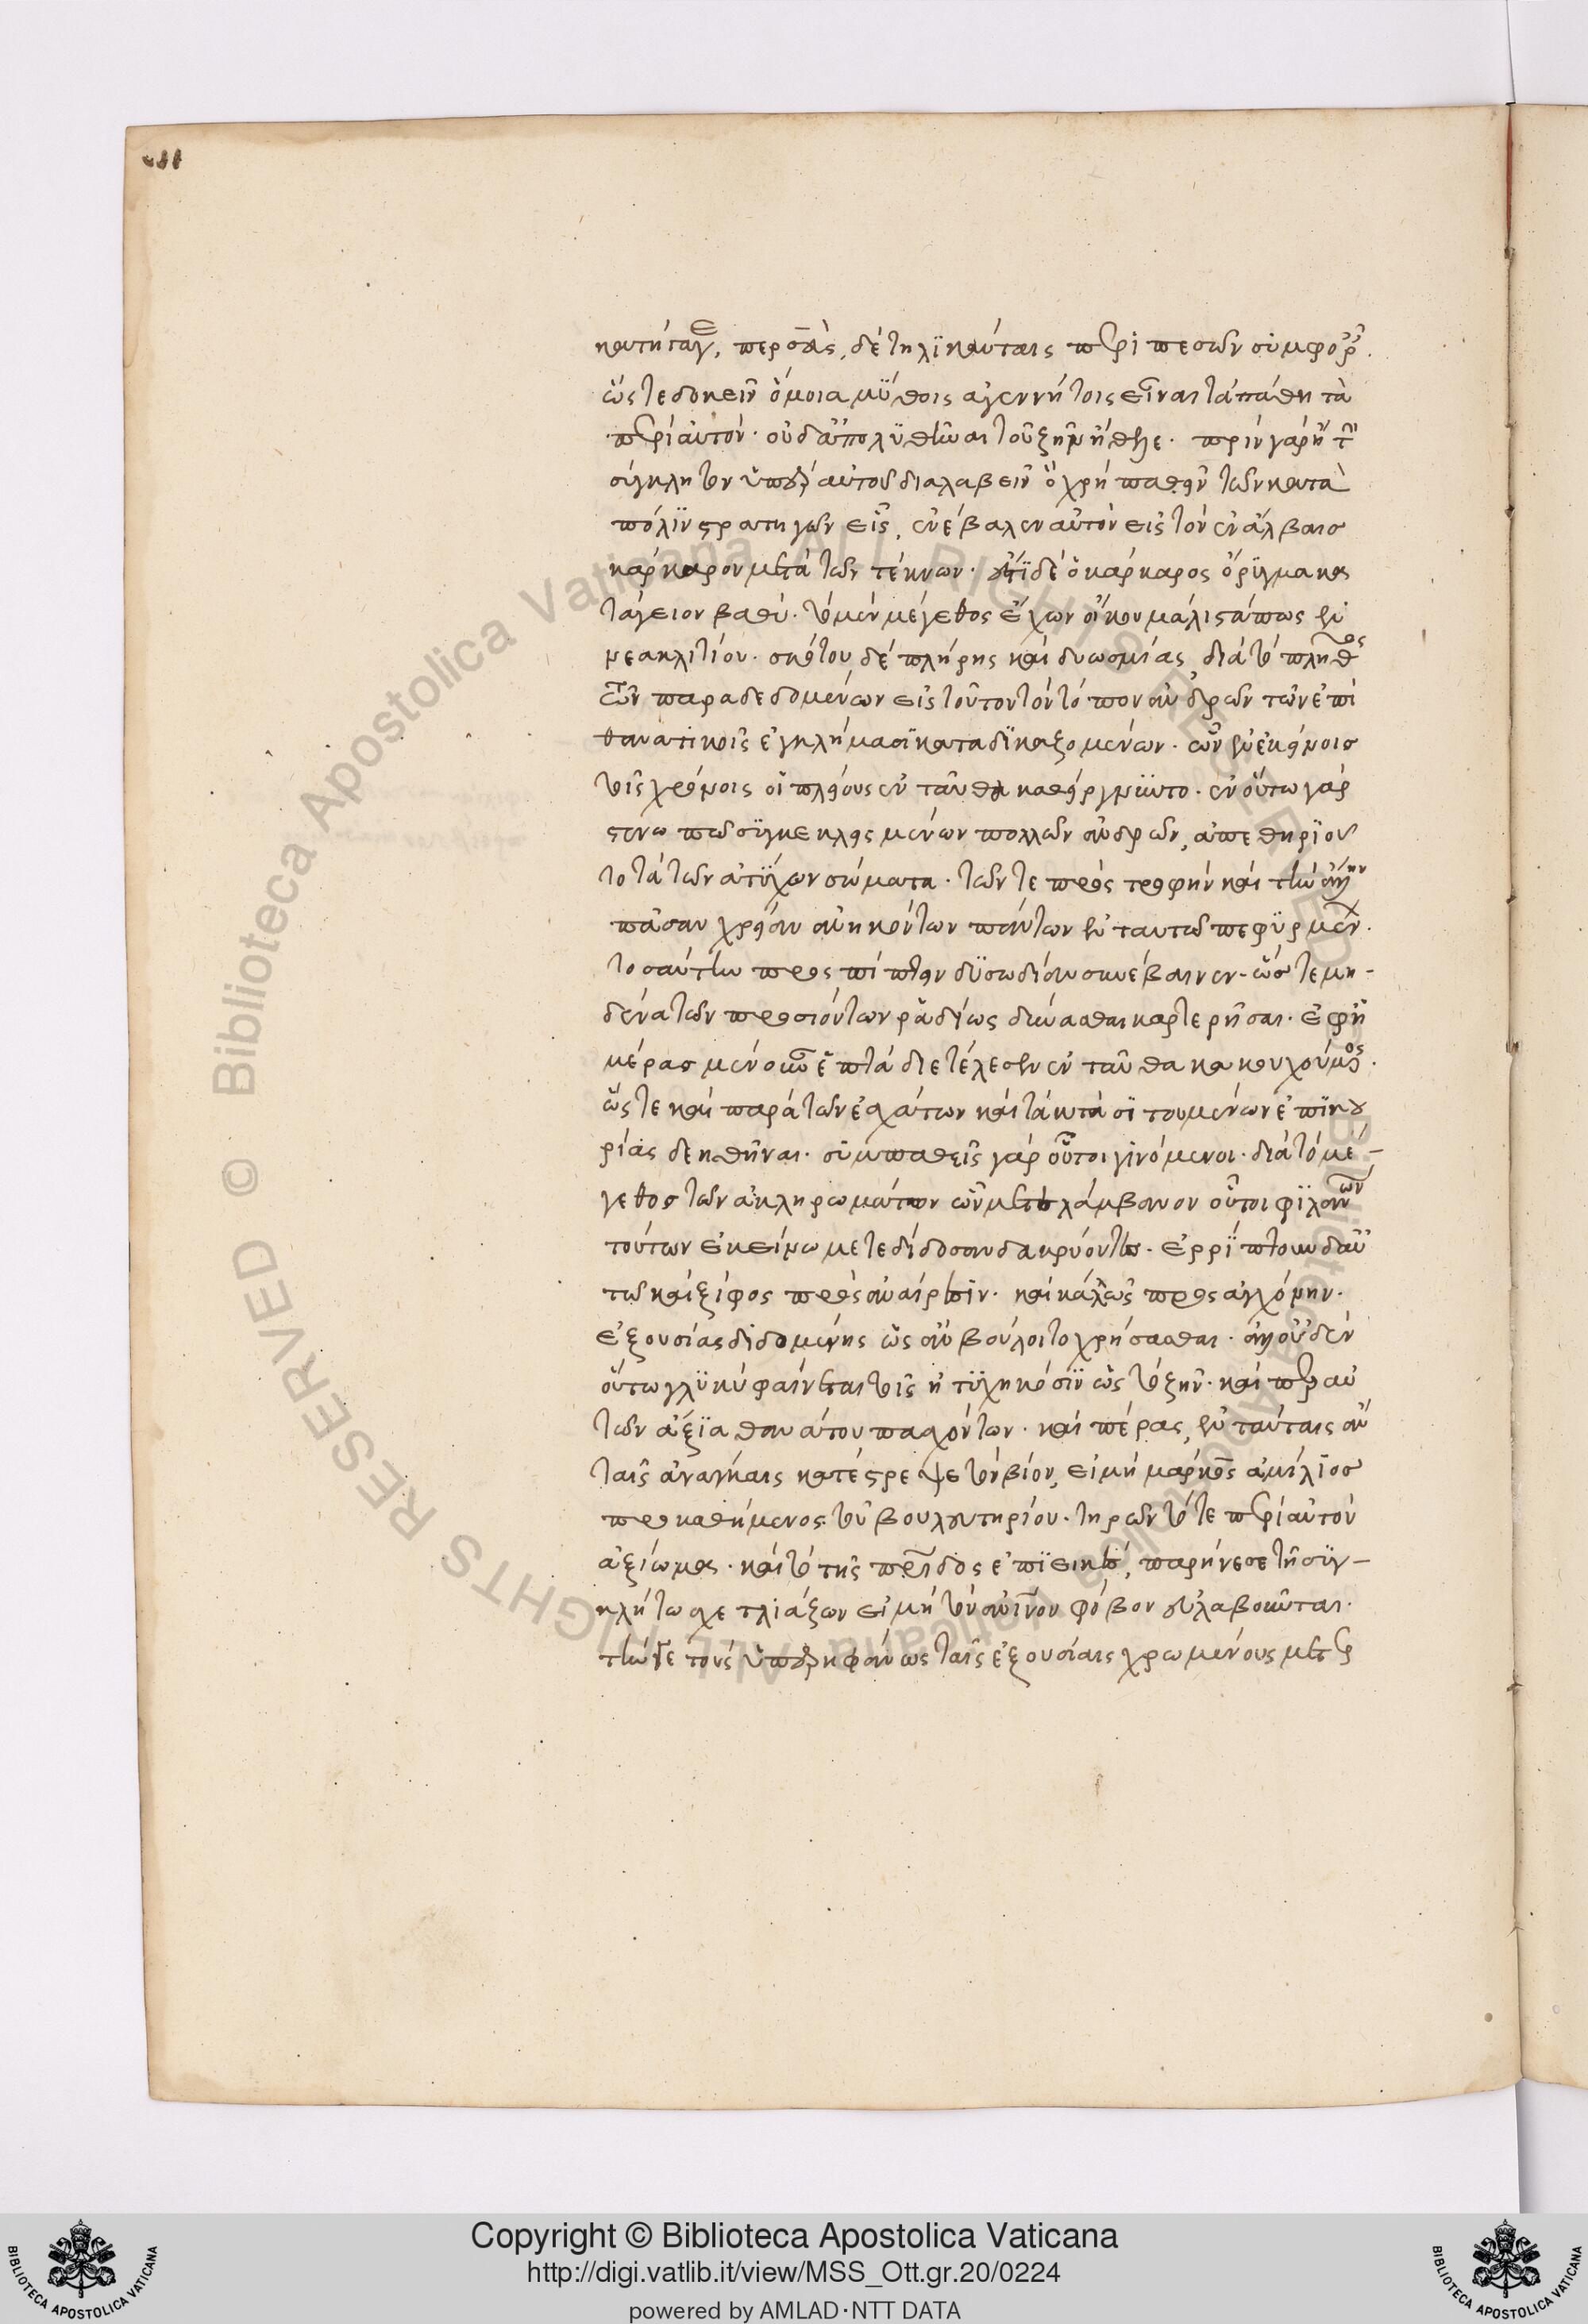 κατήχθη. περσεὺς δὲ τηλικαύταις περιπεσὼν συμφοραῖς.
ὥστε δοκεῖν ὅμοια μύθοις ἀγεννήτοις εἶναι τὰ πάθη τὰ
περὶ αὐτόν. οὐδ' ἀπολυθῆναι τοῦ ζῆν ἤθελε. πρὶν γὰρ ἢ τὴν
σύγκλητον ὑπὲρ αὐτοῦ διαλαβεῖν ὃ χρὴ παθεῖν τῶν κατὰ
πόλιν στρατηγῶν εἷς, ἐνέβαλεν αὐτὸν εἰς τὸν ἐν ἄλβαις
κάρκαρον μετὰ τῶν τέκνων. ἔστι δὲ ὁ κάρκαρος ὄρυγμα κα
τάγειον βαθύ. τὸ μὲν μέγεθος ἔχων οἴκου μάλιστά πως ἐν
νεακλιτίου. σκότου δὲ πλήρης καὶ δυσοσμίας, διὰ τὸ πλῆθος
τῶν παραδεδομένων εἰς τοῦτον τὸν τόπον ἀνδρῶν τῶν ἐπὶ
θανατικοῖς ἐγκλήμασι καταδικαζομένων. ὧν ἐν ἐκείνοις
τοῖς χρόνοις οἱ πλείους ἐνταῦθα καθείργνυντο. ἐν οὕτω γὰρ
στενῷ τόπῳ συγκεκλεισμένων πολλῶν ἀνδρῶν, ἀπεθηριοῦ
το τὰ τῶν ἀτυχῶν σώματα. τῶν τε πρὸς τροφὴν καὶ τὴν ἄλλην
πᾶσαν χρείαν ἀνηκόντων πάντων ἐν ταυτῷ πεφυρμένων.
τοσαύτην προσπίπτειν δυσωδίαν συνέβαινεν. ὥστε μη-
δένα τῶν προσιόντων ῥαδίως δύνασθαι καρτερῆσαι. ἐφ' ἡ
μέρας μὲν οὖν ἑπτὰ διετέλεσεν ἐνταῦθα κακουχούμενος.
ὥστε καὶ παρὰ τῶν ἐσχάτων καὶ τακτὰ σιτουμένων ἐπικου
ρίας δεηθῆναι. συμπαθεῖς γὰρ οὗτοι γινόμενοι. διὰ τὸ μέ-
γεθος τῶν ἀκληρωμάτων ὧν μετελάμβανον οὗτοι φιλανθρώπων
τούτων ἐκείνῳ μετεδίδοσαν δακρύοντες. ἐρρίπτουν δ' αὐ
τῷ καὶ ξίφος πρὸς ἀναίρεσιν. καὶ κάλως πρὸς ἀγχόνην.
ἐξουσίας διδομένης ὡς ἂν βούλοιτο χρήσασθαι. ἀλλ' οὐδὲν
οὕτω γλυκὺ φαίνεται τοῖς ἠτυχηκόσιν ὡς τὸ ζῆν. καίπερ αὐ
τῶν ἄξια θανάτου πασχόντων. καὶ πέρας, ἐν ταύταις ἂν
ταῖς ἀνάγκαις κατέστρεψε τὸν βίον, εἰ μὴ μάρκος αἰμίλιος
προκαθήμενος τοῦ βουλευτηρίου. τηρῶν τό τε περὶ αὐτὸν
ἀξίωμα. καὶ τὸ τῆς πατρίδος ἐπιεικές, παρῄνεσε τῇ συγ-
κλήτῳ σχετλιάζων εἰ μὴ τὸν ἀνθρώπινον φόβον εὐλαβοῦνται.
τήν γε τοὺς ὑπερηφάνως ταῖς ἐξουσίαις χρωμένους μετερ